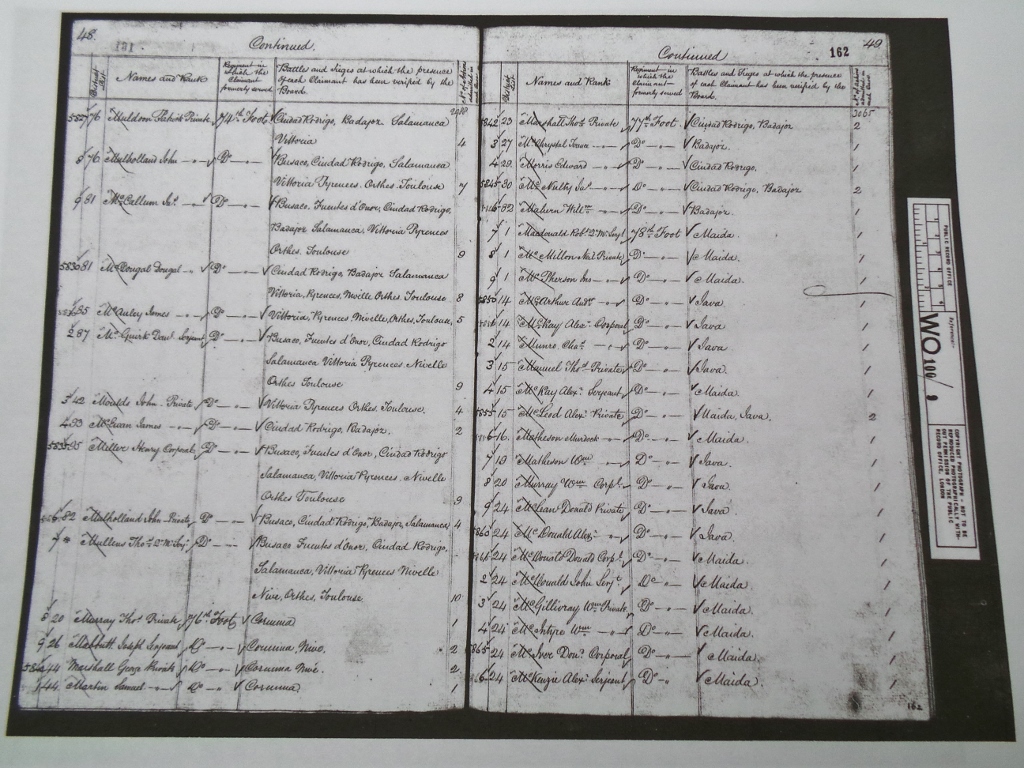 48
Continued.
Names and Rank
Regiment in which the Claimant formerly served
Battles and Sieges at which the presence of each Claimant has been verified by the Board.
76 Muldoon Patrick Private 74th Foot Ciudad Rodrigo, Badajoz Salamanca
Vittoria 4
76 Mulholland John Do Busaco, Ciudad Rodrigo, Salamanca
Vittoria Pyrenees. Orthes Toulouse 7
81 McCallum Jas. Do Busaco, Fuentes d'Onor, Ciudad Rodrigo,
Badajoz Salamanca, Vittoria Pyrenees
Orthes. Toulouse 9
81 McDougal Dougal Do Ciudad Rodrigo, Badajoz Salamanca
Vittoria, Pyrenees, Nivelle, Orthes. Toulouse 8
35 McAuley James Do Vittoria, Pyrenees Nivelle, Orthes, Toulouse, 5
2 87 Mc Quirk Danl Serjeant Do Busaco, Fuentes d'Onor, Ciudad Rodrigo
Salamanca Vittoria Pyrenees. Nivelle
Orthes Toulouse 9
3 42 Moulds John Private Do Vittoria Pyrenees Orthes. Toulouse. 4
4 53 McEuan James Do Ciudad Rodrigo, Badajoz. 2
Miller Henry Corporal Do Busaco, Fuentes d'Onor, Ciudad Rodrigo
Salamanca, Vittoria Pyrenees. Nivelle
Orthes Toulouse 9
82 Mulholland John Private Do Busaco, Ciudad Rodrigo, Badajoz, Salamanca 4
7 Mullens Thos Do Busaco Fuentes d'Onor, Ciudad Rodrigo,
Salamanca, Vittoria Pyrenees Nivelle
Nive, Orthes, Toulouse 10
8 20 Murray Thos Private 76th Foot Corunna 1
9 26 Joseph Serjeant Do Corunna Nive. 2
44 Marshall George Private Do Corunna Nive. 2
44 Martin Samuel Do Corunna 1
49
Continued
162
Names and Rank
Regiment in which the Claimant formerly served
Battles and Sieges at which the presence of each Claimant has been verified by the Board.
3065
5842 23 Marshall Thos. Private 77th Foot Ciudad Rodrigo, Badajoz 2
3 27 Do Badajoz. 1
4 29 Morris Edward Do Ciudad Rodrigo. 1
5845 30 McNulty Jas. Do Ciudad Rodrigo, Badajoz 2
82 Willm Do Badajoz. 1
7 1 Macdonald Robt 78th Foot Maida 1
8 1 Private Do Maida. 1
9 1 McPherson Jno Do Maida 1
5850 14 McArthur Andw Do Java 1
14 McKay Alexr Corporal Do Java 1
2 14 Munro Chas. Do Java 1
3 15 Manuel Thos Private Do Java. 1
4 15 McKay Alexr Serjeant Do Maida 1
5855 15 McLeod Alexr Private Do Maida, Java. 2
16 Matheson Murdoch Do Maida. 1
7 19 Matheson Wm Do Java. 1
8 20 Murray Wm Corpl. Do Java. 1
9 24 McLean Donald Private Do Java 1
5860 24 McDonald Alexr Do Java. 1
24 McDonald Donald Corpl. Do Maida. 1
2 24 McDonald John Serjt. Do Maida. 1
3 24 McGillivray Wm Private Do Maida. 1
4 24 McIntyre Wm Do Maida. 1
5865 24 McIver Donl. Corporal Do Maida. 1
6 24 McKenzie Alexr Serjeant Do Maida 1
162
PUBLIC RECORD OFFICE
Reference:-
WO 100/
COPYRIGHT PHOTOGRAPH - NOT TO BE REPRODUCED PHOTOGRAPHICALLY WITHOUT PERMISSION OF THE PUBLIC RECORD OFFICE, LONDON